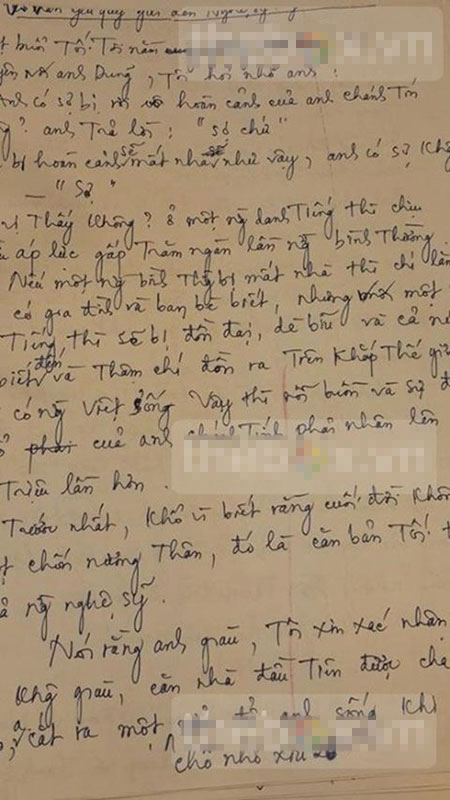 quý
buổi Tối. Tôi nằm
anh Dung, Tôi hỏi nhỏ anh:
Anh có sợ bị rơi vô hoàn cảnh của anh chánh Tín
? anh Trả lời: "sợ chứ"
bị hoàn cảnh sẽ mất nhà như vây, anh có sợ Khg
– "Sợ"
Thấy Không? ở một ng danh Tiếng thì chịu
áp lực gấp Trăm ngàn lần ng bình Thường.
Nếu một ng bình Thg bị mất nhà thì chỉ làm
có gia đình và bạn bè biết, nhưng một
Tiếng thì sẽ bị đồn đại, dè bỉu và cả
biết đến và Thậm chí đồn ra Trên Khắp Thế giới
có ng Việt sống Vây thì nỗi buồn và sự
của anh chánh Tính phải nhân lên
Triệu lần hơn.
Trước nhất, Khổ vì biết rằng cuối đời Không
chốn nương Thân, đó là căn bản Tối
ng nghệ sỹ.
Nói rằng anh giàu, Tôi xin xác nhận
Khg giàu, căn nhà đầu Tiên được
cất ra một anh sống Khi
chỗ nhỏ xíu